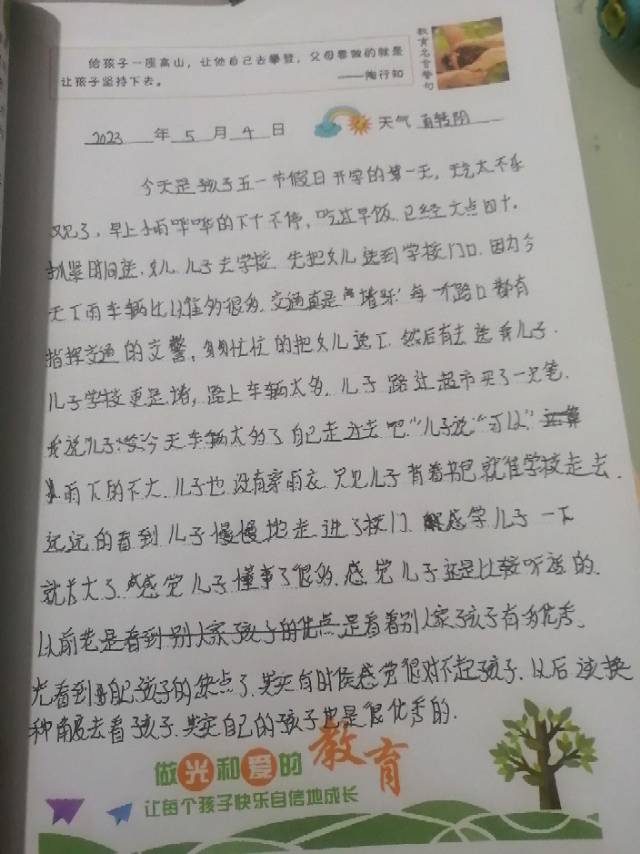 给孩子一座高山，让他自己去攀登，父母要做的就是
让孩子坚持下去。
——陶行知
教育名言警句
2023 年 5 月 4 日 天气 雨转阴
今天是孩子五一节假日开学的第一天，天气太不乐
观了，早上小雨哗哗的下个不停，吃过早饭，已经六点四十，
抓紧时间送女儿、儿子去学校，先把女儿送到学校门口，因为今
天下雨车辆比以往多很多，交通真是堵塞 每一个路口都有
指挥交通的交警，匆匆忙忙的把女儿送下，然后有去送我儿子，
儿子学校更是堵，路上车辆太多，儿子路过超市买了一只笔，
我说儿子今天车辆太多了自己走过去吧”儿子说“可以”
雨下的不大，儿子也没有穿雨衣，只见儿子背着书包就往学校走去，
远远的看到儿子慢慢地走进了校门，感觉儿子一下
就长大了，感觉儿子懂事了很多，感觉儿子还是比较听话的，
以前老是看到别人家孩子的优点是看着别人家孩子有多优秀，
光看到自己孩子的缺点了，其实有时候感觉很对不起孩子，以后该换
种角度去看孩子，其实自己的孩子也是很优秀的.
做光和爱的教育
让每个孩子快乐自信地成长